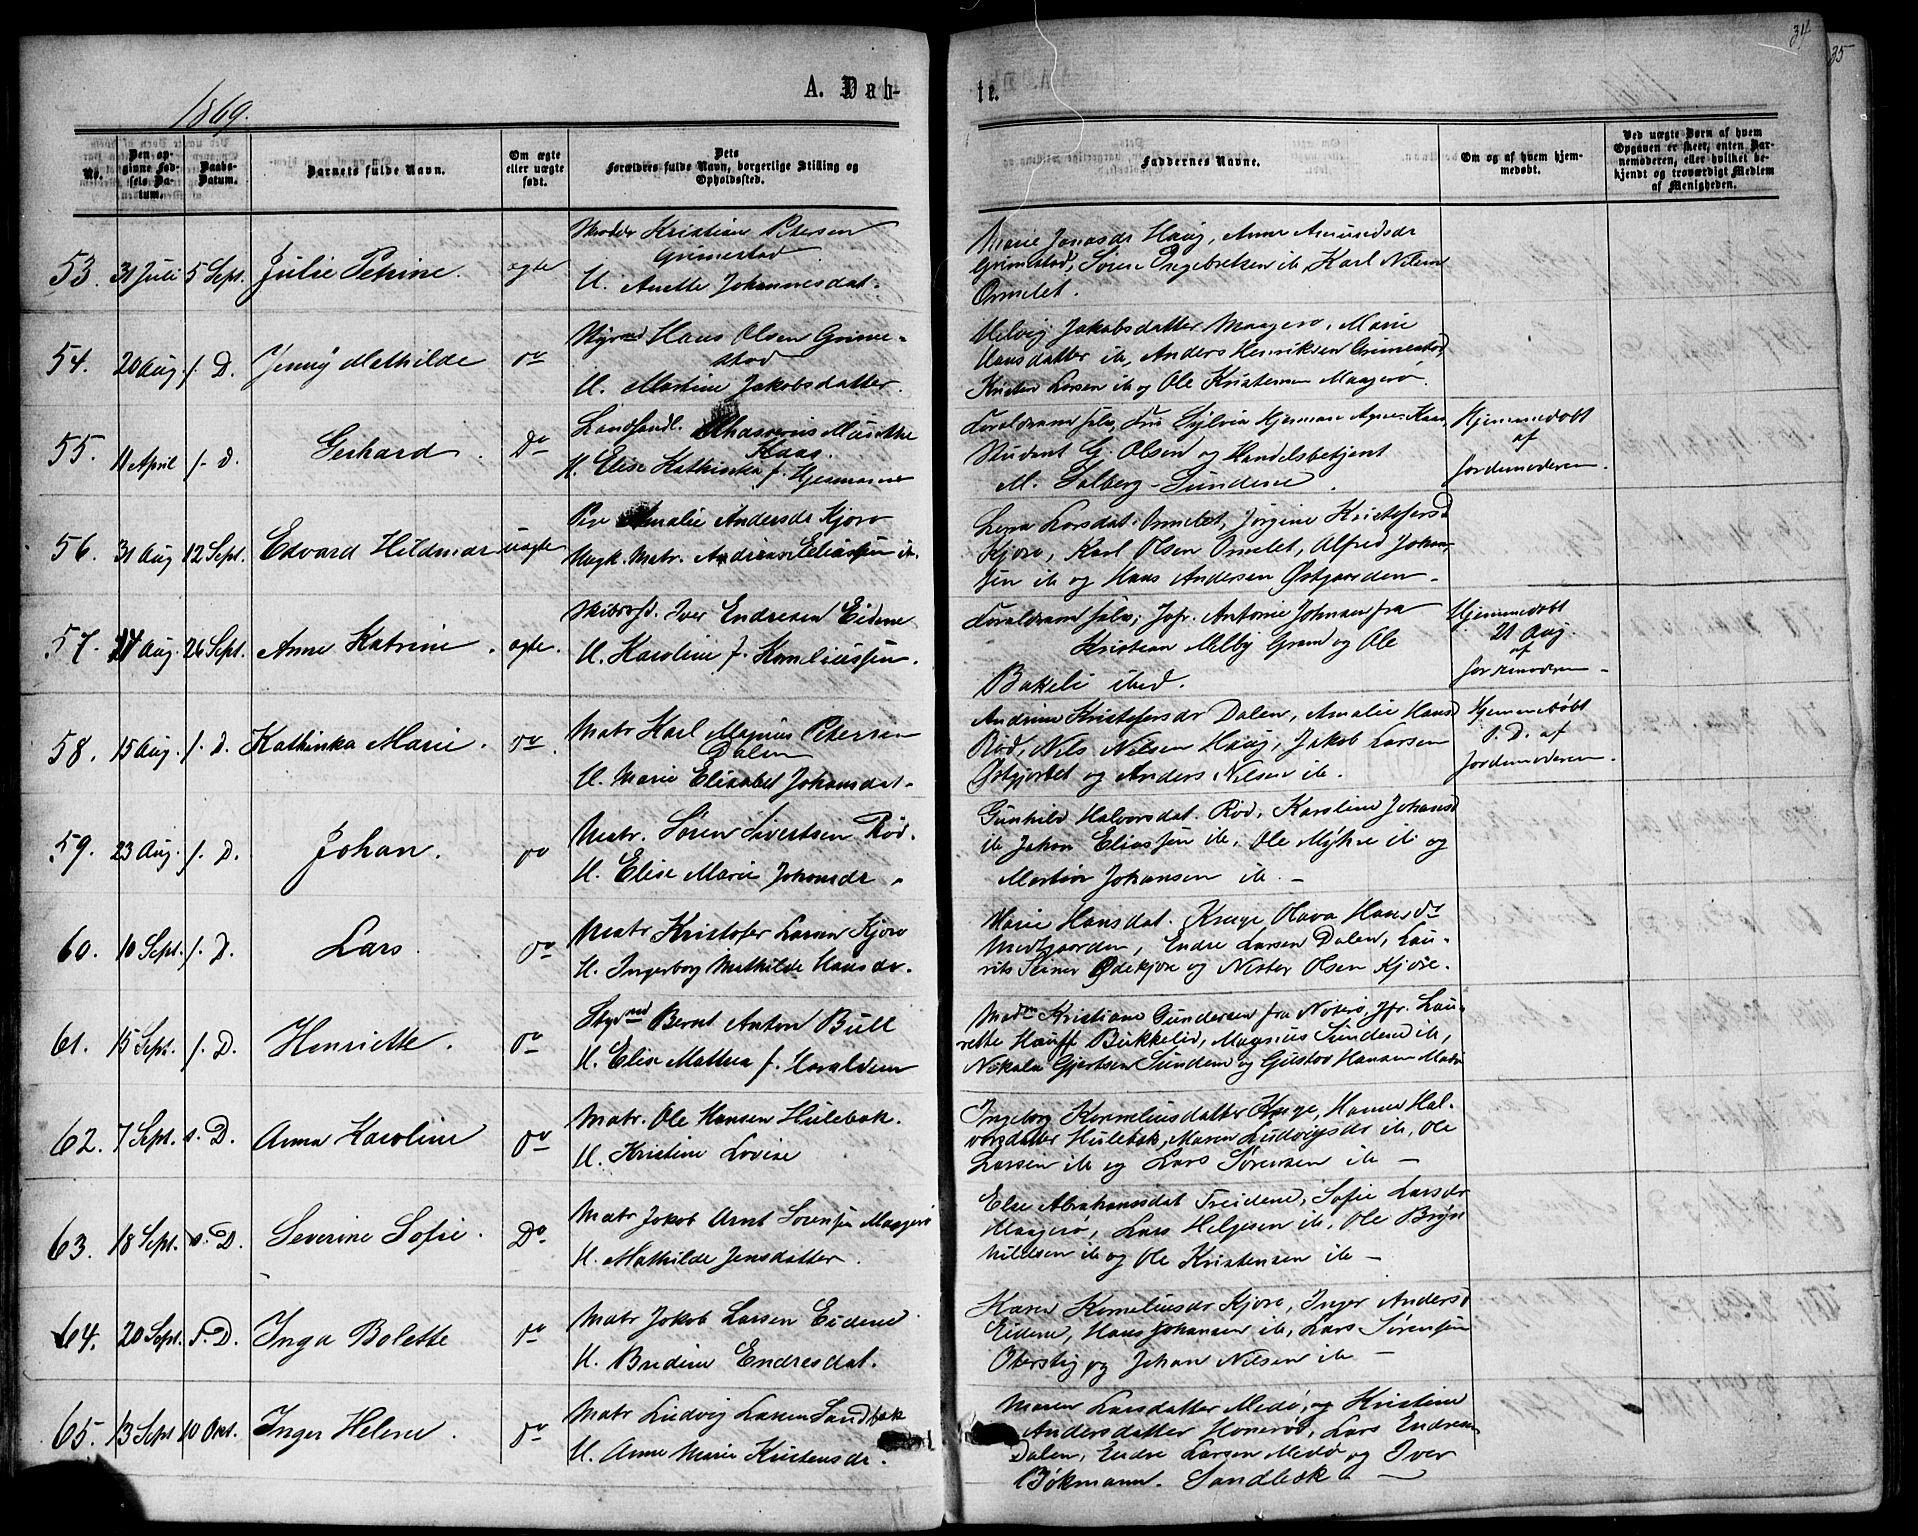 34
35
1869.
A. Døb-
te.
No.
Den op-
givne Fød-
sels Da-
tum.
Daabs-
Datum.
Barnets fulde Navn.
Om ægte
eller uægte
født.
Dets
Forældres fulde Navn, borgerlige Stilling og
Opholdssted.
Faddernes Navne.
Om og af hvem hjem-
medøbt.
Ved uægte Børn af hvem
Opgaven er skeet, enten Bar-
nemoderen, eller hvilket be-
kjendt og troværdigt Medlem
af Menigheden.
53. 31 Juli 5 Sept. Julie Petrine. ægte
Kristian Petersen
Grimestad
H. Anette Johannesdat.
Marie Jonasdr Haug, Anne Amundsdr
Grimestad, Søren Ingebretsen ib, Karl Nilsen
Ormelet.
54. 20 Aug s. D. Jenny Mathilde do
Styrmd Hans Olsen Grime-
stad
H. Martine Jakobsdatter.
Helvig Jakobsdatter Maagerø, Marie
Hansdatter ib, Anders Henriksen Grimestad,
Kristen Larsen ib og Ole Kristensen Maagerø.
55. 11 April s. D. Gerhard. Do
Landhandl. Ahasverus Musetke
Haas.
H. Elise Kathinka f. Hjermann
Forældrene selv, Frk Sylvia Hjermann, Agnes Haas
Student G. Olsen og Handelsbetjent
M. Solberg - Sundene.
Hjemmedøbt
af
Jordemoderen.
56. 31 Aug 12 Sept. Edvard Hildmar uægte
Pige Amalie Andersdr Kjøre
Ungk. Matr. Andreas Eliassen ib.
Lena Larsdat. Ormelet, Jørgine Kristofersd
Kjøre, Karl Olsen Ormelet, Alfred Johan-
sen ib og Hans Andersen Østgaarden.
57. 14 Aug. 26 Sept. Anne Katrine. ægte.
Skibsf. Iver Endresen Eidene
H. Karoline f. Korneliussen.
Forældrene selv, Jofr. Antonie Johnsen fra
Kristian Melby Gran og Ole
Bakeli ibid.
Hjemmedøbt
21 Aug.
af
Jordemoderen
58. 15 Aug. s. D. Kathinka Marie. do.
Matr Karl Magnus Petersen
Dalen
H. Marie Elisabet Johansdat.
Andrine Kristofersdr Dalen, Amalie Hansd
Rød, Nils Nilsen Haug, Jakob Larsen
Østgjordet og Anders Nilsen ib.
Hjemmedøbt
s. D. af
Jordemoderen.
59. 23 Aug. s. D. Johan. do
Matr. Søren Sivertsen Rød.
H. Elise Marie Johansdr.
Gunhild Halvorsdat. Rød, Karoline Johansd
ib Johan Eliassen ib, Ole Myhre ib og
Martin Johansen ib. -
60. 10 Sept. s. D. Lars. do
Matr Kristofer Larsen Kjøre
H. Ingeborg Mathilde Hansdr.
Marie Hansdat. Kruge Olava Hansdr
Medgaarden, Endre Larsen Dalen, Lau-
rits Steiner Ødekjøre og Nestor Olsen Kjøre.
61. 15 Sept. s. D. Henriette. do
Styrmd Bernt Anton Bull
H. Elise Mathea f. Haraldsen
Madm Kristiane Gundersen fra Nøterø, Jfr. Lau-
rette Hauff Bukkelid, Magnus Sundene ib,
Nikolai Gjertsen Sundene og Gustav Hansen
62. 7 Sept. s. D. Anna Karoline do
Matr. Ole Hansen Hulebak.
H. Kristine Lovise
Ingeborg Korneliusdatter Kruge, Hanna Hal-
vorsdatter Hulebak, Maren Ludvigsdr ib, Ole
Larsen ib og Lars Sørensen ib -
63. 18 Sept. s. D. Severine Sofie. Do
Matr Jakob Arnt Sørensen Maagerø
H. Mathilde Jensdatter.
Else Abrahamsdat Treidene, Sofie Larsdr
Maagerø, Lars Helgesen ib, Ole Bryn-
hildsen ib og Ole Kristensen ib -
64. 20 Sept. s. D. Inga Bolette do
Matr Jakob Larsen Eidene
H. Bredine Endresdat.
Karen Korneliusdr Kjøre, Inger Andersd
Eidene, Hans Johansen ib, Lars Sørensen
Oterstig og Johan Nilsen ib -
65. 13 Sept 10 Okt. Inger Helene. do
Matr Ludvig Larsen Sandbæk
H. Anne Marie Kristensdr.
Maren Larsdatter Medø, og Kristine
Andersdatter Honerød, Lars Endresen
Dalen, Endre Larsen Medø og Iver
Bøkmann. Sandbæk -